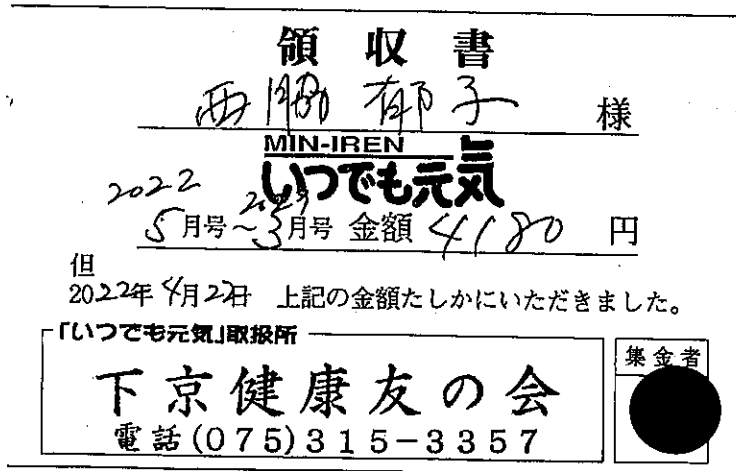 領収書
西脇 郁子 様
MIN-IREN
いつでも元気
2022 2023
5月号~3月号 金額 4180 円
但
2022年4月22日 上記の金額たしかにいただきました。
「いつでも元気」取扱所
集金者
下京健康友の会
電話(075)315-3357